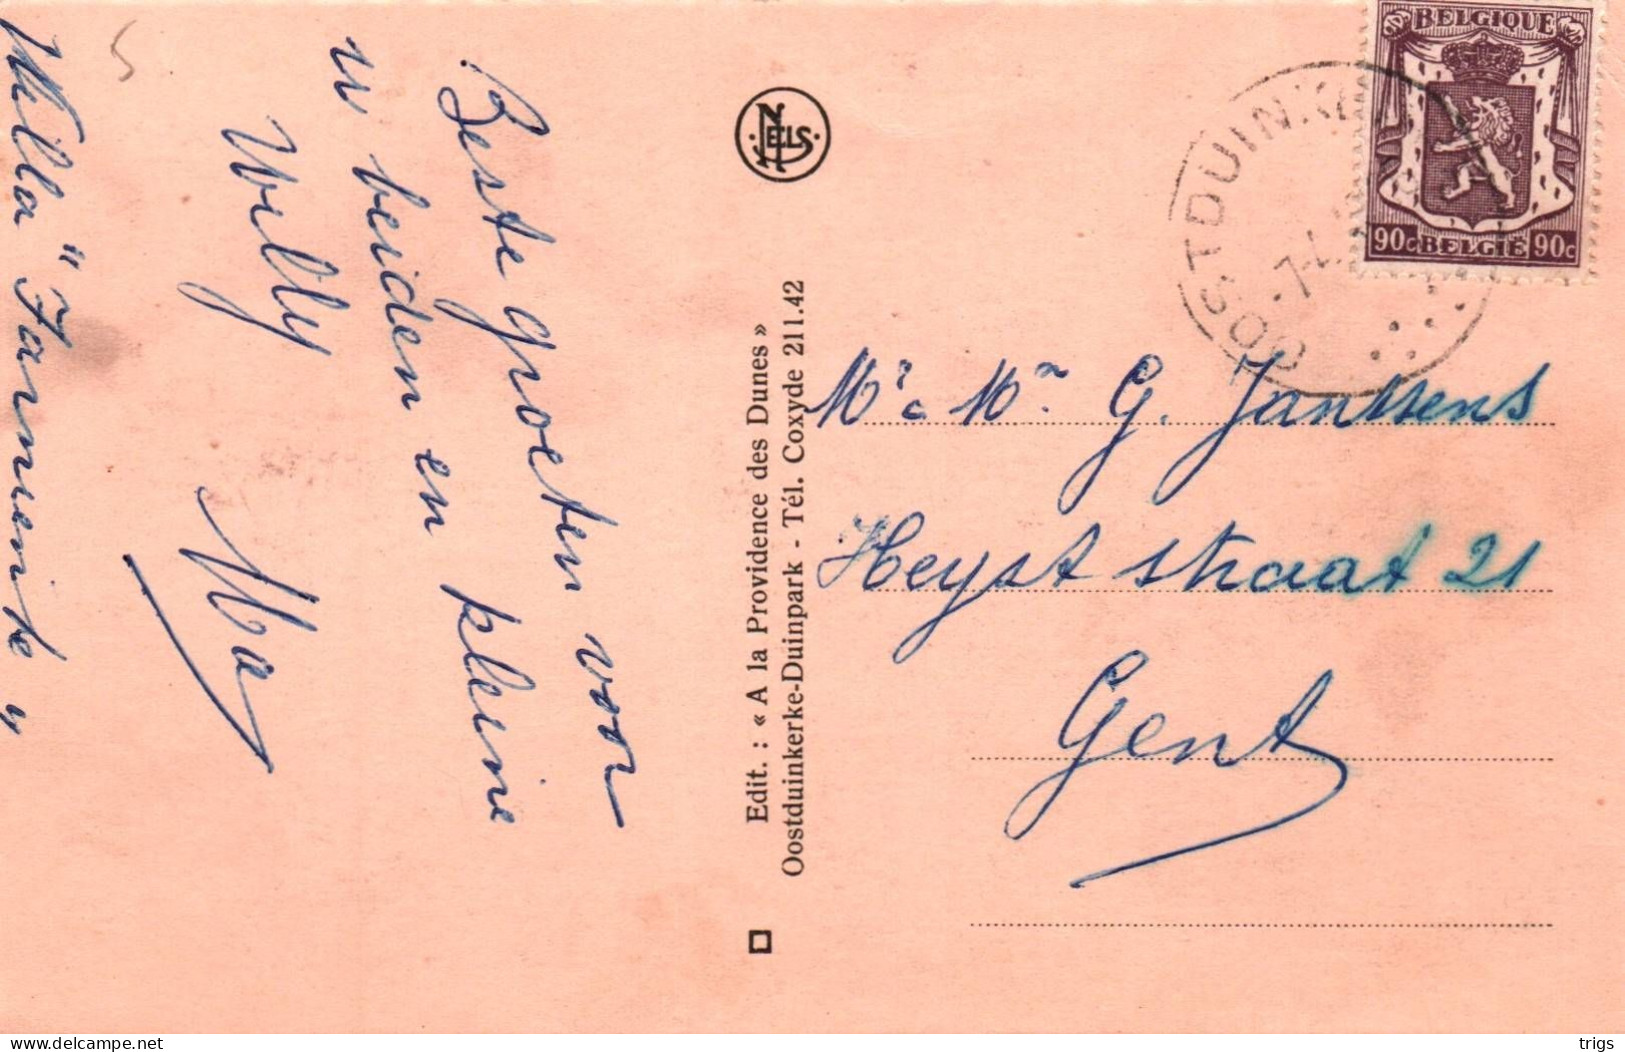 Beste groeten voor
u beiden en kleine
Willy
Ma
Villa "
NELS
Edit. : « A la Providence des Dunes »
Oostduinkerke-Duinpark - Tél. Coxyde 211.42
BELGIQUE
90c BELGIË 90c
OOSTDUINK
Mr & Mme G. Janssens
Heyststraat 21
Gent
delcampe.net
trigs